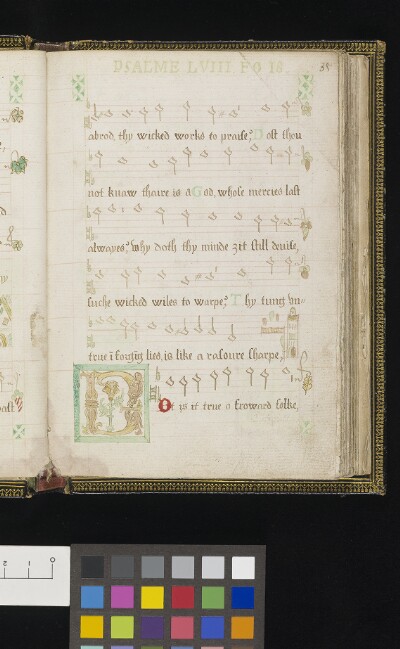 PSALME LVIII FO 18
38
abrod thy wicked works to praise? Dost thou
not knaw thaire is a God, whose mercies last
alwayes? Why doth thy minde ʒit still deuise,
suche wicked wiles to warpe? Thy tung vn-
true i forgig lies, is like a rasoure sharpe,
Ot is it true o froward folke,
2 1 0